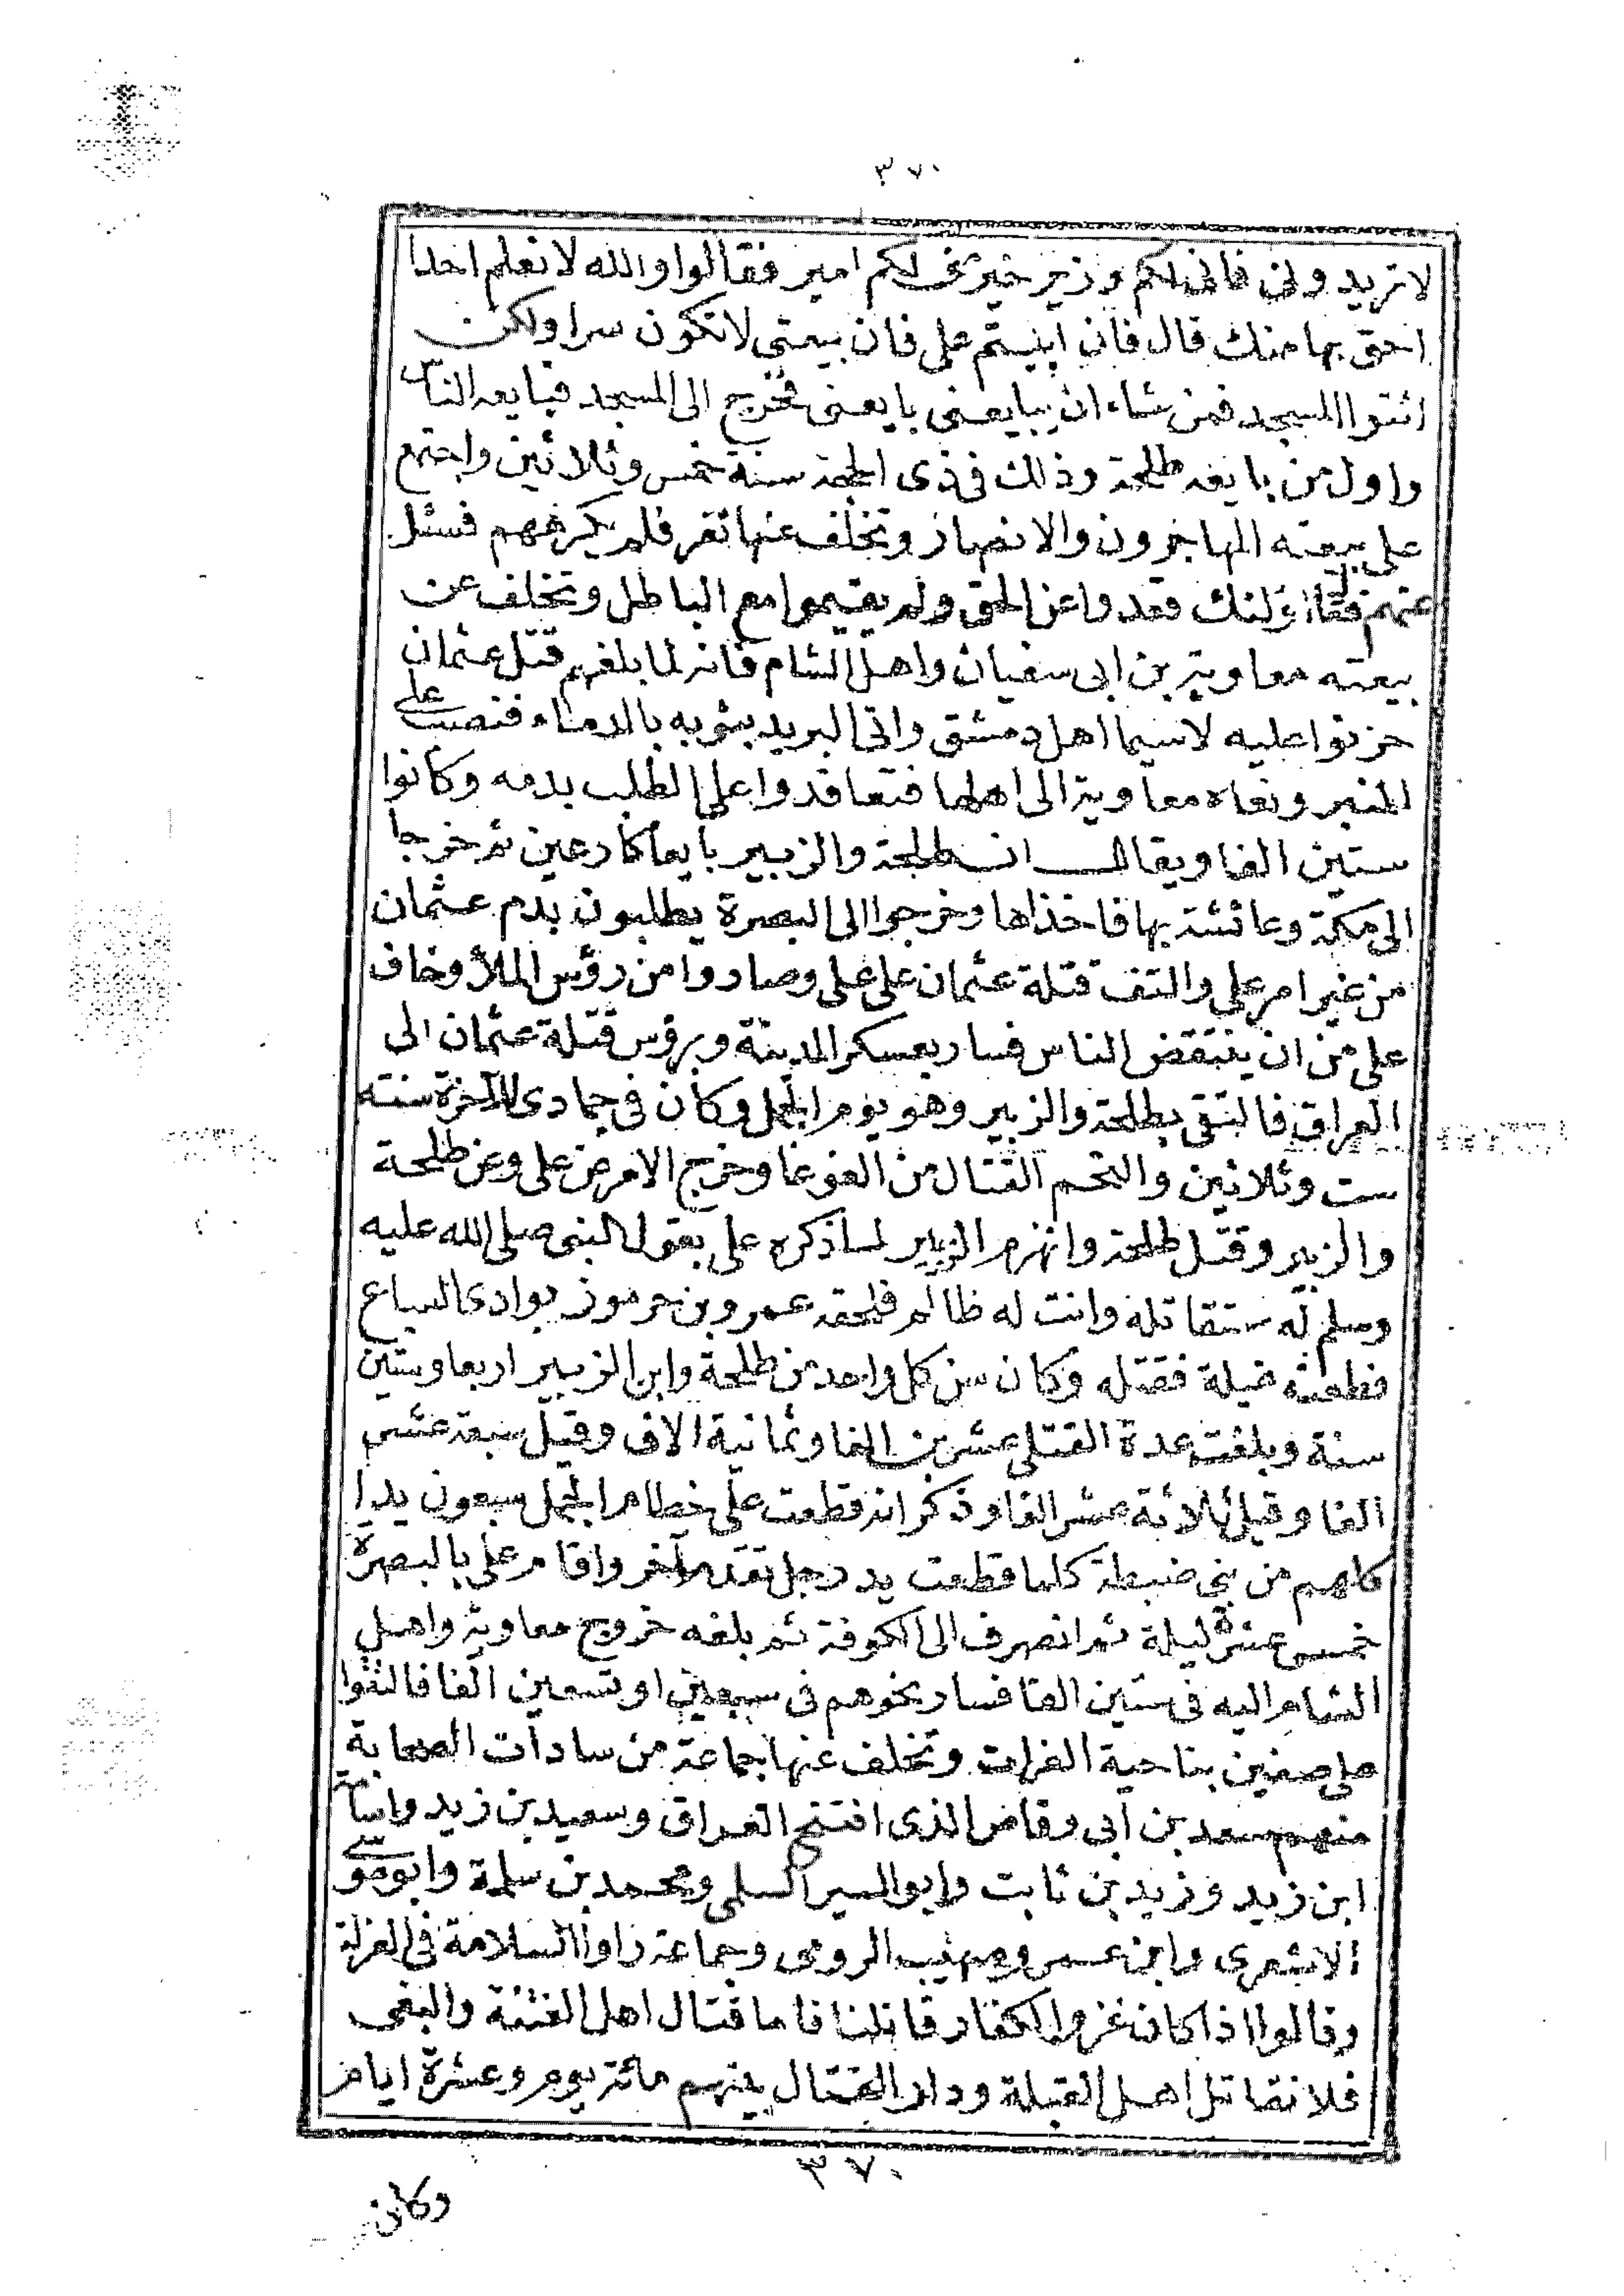 ٣٧٠
لا تريد ونى فانى لكم وزير خير منى لكم امير فقالوا والله لا نعلم احدا
احق بها منك قال فان ابيتم على فان بيعتى لا تكون سرا ولكن
ائتوا المسجد فمن شاء ان يبايعنى بايعنى فخرج الى المسجد فبايعه الناس
واول من بايعه طلحة وذلك فى ذى الحجة سنة خمس وثلاثين واجتمع
على بيعته المهاجرون والانصار وتخلف عنها نفر فلم يكرههم فسئل
عنهم فقال اولئك قعدوا عن الحق ولم يقيموا مع الباطل وتخلف عن
بيعته معاوية بن ابى سفيان واهل الشام فانه لما بلغهم قتل عثمان
حزنوا عليه لاسيما اهل دمشق واتى البريد بثوبه بالدماء فنصب على
المنبر ونعاه معاوية الى اهلها فتعاقدوا على الطلب بدمه وكانوا
ستين الفا ويقال ان طلحة والزبير بايعا كارهين ثم خرجا
الى مكة وعائشة بها فاخذاها وخرجوا الى البصرة يطلبون بدم عثمان
من غير امر على والتف قتلة عثمان على على وصاروا من رؤس الملأ وخاف
على من ان ينتقض الناس فسار بعسكر المدينة وبرؤس قتلة عثمان الى
العراق فالتقى بطلحة والزبير وهو يوم الجمل وكان فى جمادى الآخرة سنة
ست وثلاثين والتحم القتال من الغوغا وخرج الامر عن على وعن طلحة
والزبير وقتل طلحة وانهزم الزبير لما ذكره على بقول النبى صلى الله عليه
وسلم له ستقاتله وانت له ظالم فلحقه عمرو بن جرموز بوادى السباع
فطعنه غيلة فقتله وكان سن كل واحد من طلحة وابن الزبير اربعا وستين
سنة وبلغت عدة القتلى عشرين الفا وثمانية الاف وقيل سبعة عشر
الفا وقيل ثلاثة عشر الفا وذكر انه قطعت على خطام الجمل سبعون يدا
كلهم من بنى ضبطة كلما قطعت يد رجل تقدم آخر واقام على بالبصرة
خمس عشرة ليلة ثم انصرف الى الكوفة ثم بلغه خروج معاوية واهل
الشام اليه فى ستين الفا فسار نحوهم فى سبعين او تسعين الفا فالتقوا
على صفين بناحية الفرات وتخلف عنها جماعة من سادات الصحابة
منهم سعد بن ابى وقاص الذى افتتح العراق وسعيد بن زيد واسامة
ابن زيد وزيد بن ثابت وابو اليسر السلمى ومحمد بن سلمة وابو موسى
الاشعرى وابن عمر وصهيب الرومى وجماعة راوا السلامة فى العزلة
وقالوا اذا كان غزو الكفار قاتلنا فاما قتال اهل الفتنة والبغى
فلا نقاتل اهل القبلة ودار القتال بينهم مائة يوم وعشرة ايام
٣٧٠
وكان